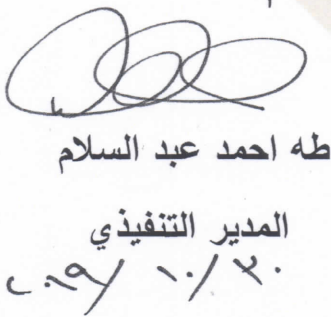 طه احمد عبد السلام
المدير التنفيذي
٢٠١٩/١٠/٣٠